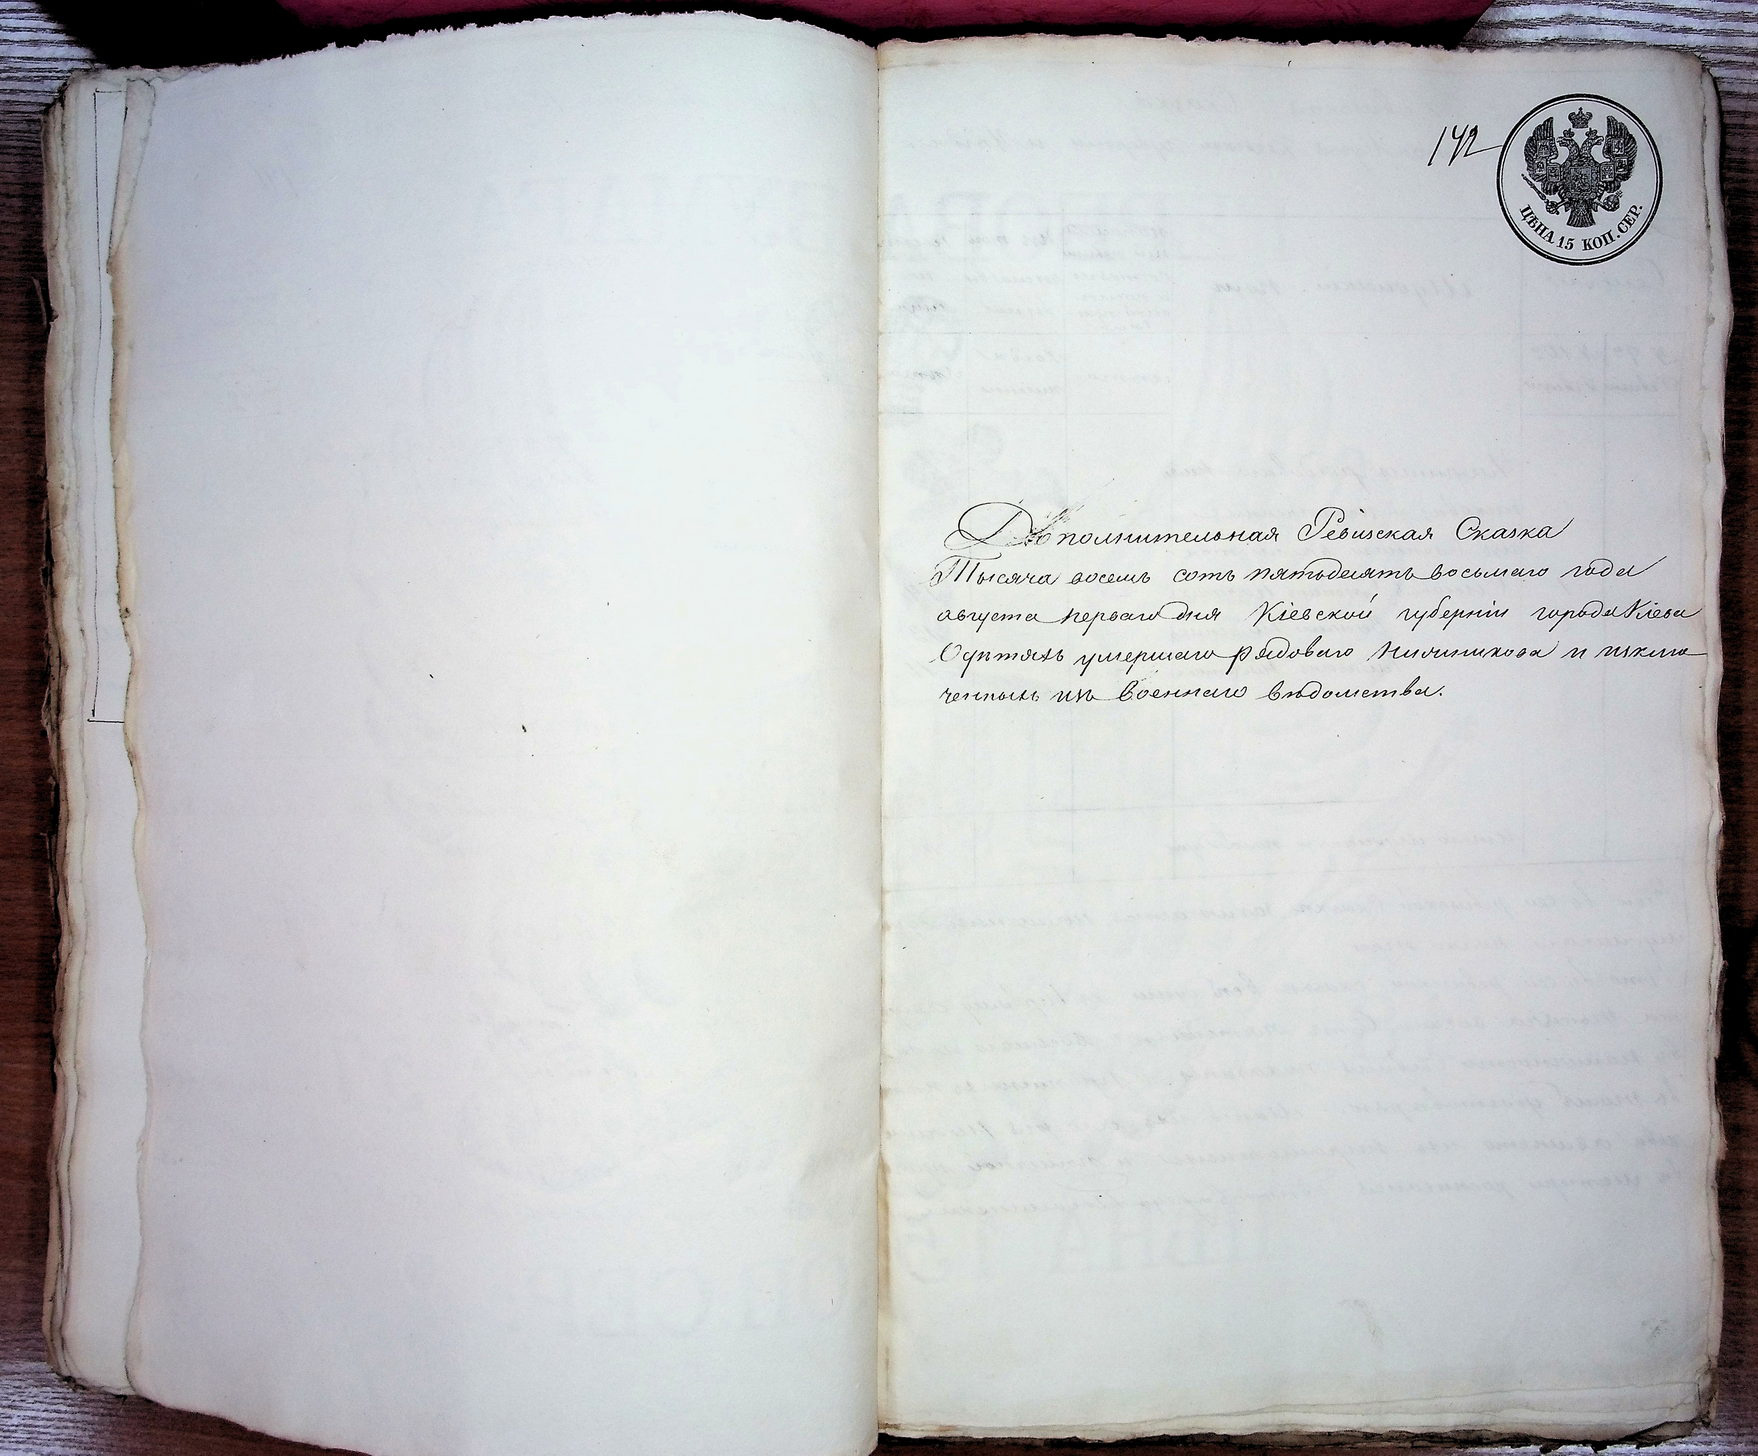 142
ЦѢНА 15 КОП. СЕР.
Дополнительная Ревизская Сказка
Тысяча восемь сотъ пятьдесятъ восьмаго года
августа перваго дня Кіевской губерніи города Кіева
О дѣтяхъ умершаго рядоваго и исклю
ченныхъ изъ военнаго вѣдомства.